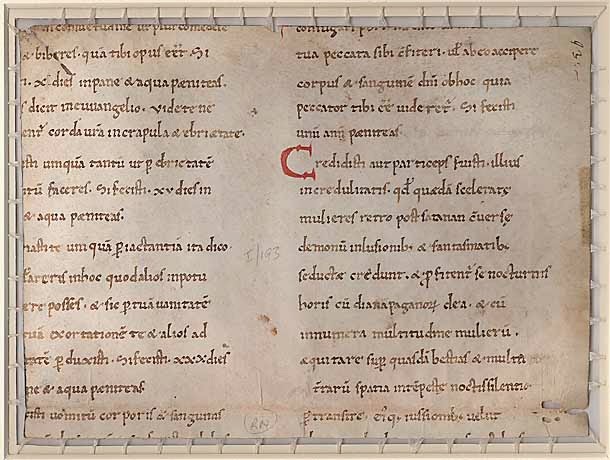 & biberes. quā tibi opus eēt. Si
i. x. dies in pane & aqua pæniteas.
s dicit in euuangelio. Videte ne
corda urā in crapula & ebrietate.
sti umquā tantū ut p̄ ebrietatē
faceres. Si fecisti. xv. dies in
& aqua pæniteas.
asti te umquā p̄ iactantia ita dico
in hoc quod alios in potu
ere posses. & sic p̄ tuā uanitatē
tuā exortationē te & alios ad
tatē p̄duxisti. Si fecisti. xxx dies
ne & aqua pæniteas
isti uomitū corporis & sanguinis
I/193
RN
tua peccata sibi c̄fiteri. ul ab eo accipere
corpus & sanguinē dn̄i. ob hoc quia
peccator tibi eē uideret̄. Si fecisti
unū annū pæniteas.
Credidisti aut particeps fuisti. illius
incredulitatis. qd quædā sceleratę
mulieres retro post satanan c̄uersę
demonū inlusionib. & fantasmatib.
seductæ credunt. & p̄fitent̄ se nocturnis
horis cū diana paganorū dea. & cū
innumera multitudine mulierū.
æquitare sup̄ quasdā bestias & multa
t̄rarū spatia intēpestę noctis silentio
p̄transire. eiꝰq. iussionib. uelut